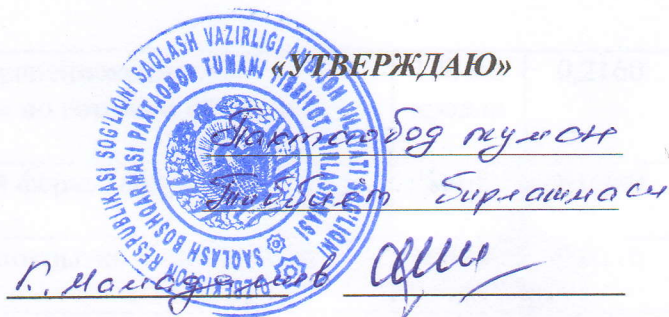 «УТВЕРЖДАЮ»
Пахтаобод туман
Тиббиёт бирлашмаси
O'ZBEKISTON RESPUBLIKASI SOG'LIQNI SAQLASH VAZIRLIGI ANDIJON VILOYATI SOG'LIQNI SAQLASH BOSHQARMASI PAXTAOBOD TUMANI TIBBIYOT BIRLASHMASI
0,2160